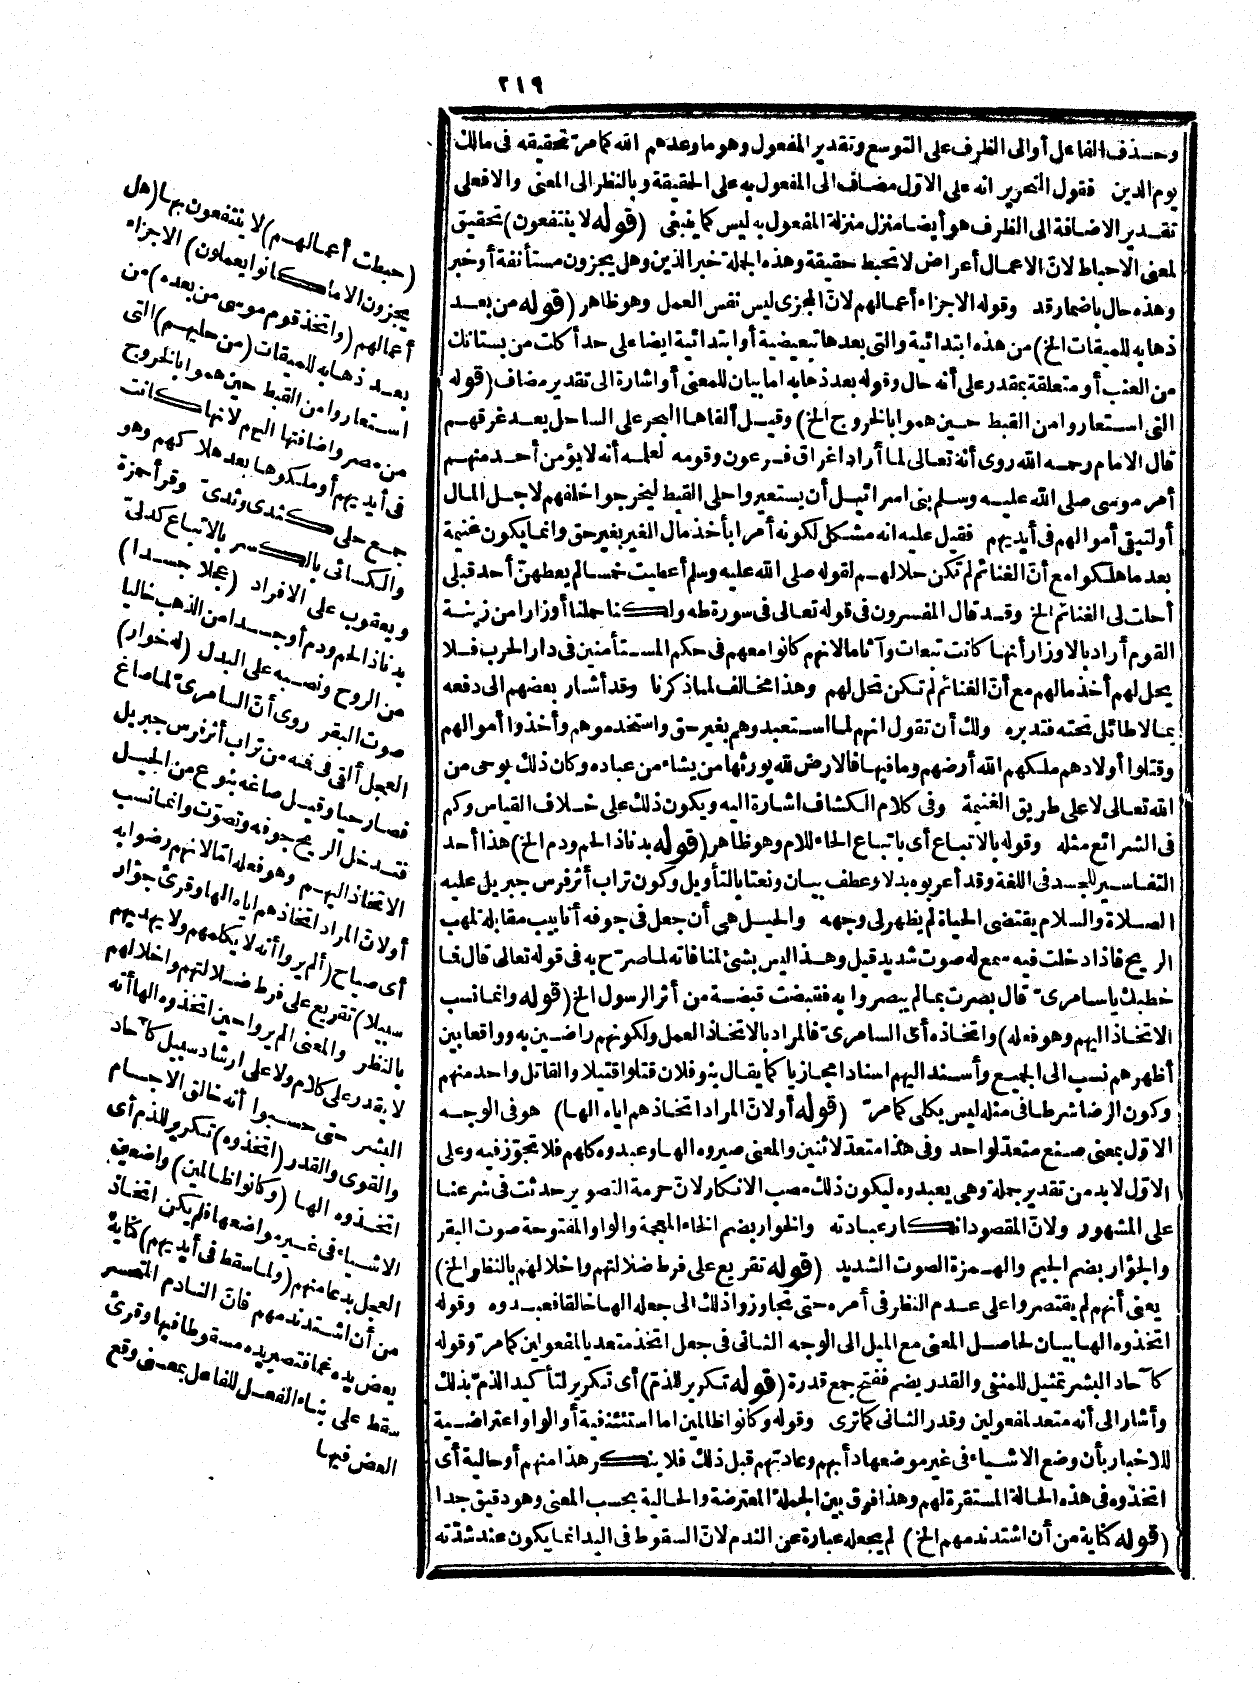 ٢١٩
وحذف الفاعل أوالى الظرف على التوسع وتقدير المفعول وهو ماوعدهم الله كمامرّ تحقيقه فى مالك
يوم الدين فقول النحرير انه على الاوّل مضاف الى المفعول به على الحقيقة وبالنظر الى المعنى والافعلى
تقدير الاضافة الى الظرف هو أيضا منزل منزلة المفعول به ليس كما ينبغى (قوله لا ينتفعون) تحقيق
لمعنى الاحباط لانّ الاعمال أعراض لا تحبط حقيقة وهذه الجملة خبر الذين وهل يجزون مستأنفة أو خبر
وهذه حال باضمار قد وقوله الاجزاء أعمالهم لانّ المجزى ليس نفس العمل وهو ظاهر (قوله من بعد
ذهابه للميقات الخ) من هذه ابتدائية والتى بعدها تبعيضية أو ابتدائية ايضا على حد أكلت من بستانك
من العنب أو متعلقة بمقدر على أنه حال وقوله بعد ذهابه اما بيان للمعنى أو اشارة الى تقدير مضاف (قوله
التى استعاروا من القبط حين هموا بالخروج الخ) وقيل ألقاها البحر على الساحل بعد غرقهم
قال الامام رحمه الله روى أنه تعالى لما أراد اغراق فرعون وقومه لعلمه أنه لا يؤمن أحد منهم
أمر موسى صلى الله عليه وسلم بنى اسرائيل أن يستعيروا حلى القبط ليخرجوا خلفهم لاجل المال
أو لتبقى أموالهم فى أيديهم فقيل عليه انه مشكل لكونه أمرا بأخذ مال الغير بغير حق وانما يكون غنيمة
بعد ما هلكوا مع أنّ الغنائم لم تكن حلالهم لقوله صلى الله عليه وسلم أعطيت خمسا لم يعطهنّ أحد قبلى
أحلت لى الغنائم الخ وقد قال المفسرون فى قوله تعالى فى سورة طه ولكنا حملنا أوزارا من زينة
القوم أراد بالاوزار أنها كانت تبعات وآثاما لانهم كانوا معهم فى حكم المستأمنين فى دار الحرب فلا
يحل لهم أخذ مالهم مع أنّ الغنائم لم تكن تحل لهم وهذا مخالف لما ذكرنا وقد أشار بعضهم الى دفعه
بما لا طائل تحته فتدبره ولك أن تقول انهم لما استعبدوهم بغير حق واستخدموهم وأخذوا أموالهم
وقتلوا أولادهم ملكهم الله أرضهم وما فيها فالارض لله يورثها من يشاء من عباده وكان ذلك بوحى من
الله تعالى لا على طريق الغنيمة وفى كلام الكشاف اشارة اليه ويكون ذلك على خلاف القياس وكم
فى الشرائع مثله وقوله بالاتباع أى باتباع الحاء للام وهو ظاهر (قوله بدنا ذا لحم ودم الخ) هذا أحد
التفاسير للجسد فى اللغة وقد أعربوه بدلا وعطف بيان ونعتا بالتأويل وكون تراب أثر فرس جبريل عليه
الصلاة والسلام يقتضى الحياة لم يظهر لى وجهه والحيل هى أن جعل فى جوفه أنابيب مقابلة لمهب
الريح فاذا دخلت فيه سمع له صوت شديد قيل وهذا ليس بشئ لمنافاته لما صرّح به فى قوله تعالى قال فما
خطبك ياسامرىّ قال بصرت بما لم يبصروا به فقبضت قبضة من أثر الرسول الخ (قوله وانما نسب
الاتخاذ اليهم وهو فعله) واتخاذه أى السامرىّ فالمراد بالاتخاذ العمل ولكونهم راضين به وواقعا بين
أظهرهم نسب الى الجميع وأسند اليهم اسنادا مجازيا كما يقال بنو فلان قتلوا قتيلا والقاتل واحد منهم
وكون الرضا شرطا فى مثله ليس بكلى كما مرّ (قوله أو لانّ المراد اتخاذهم اياه الها) هو فى الوجه
الاوّل بمعنى صنع متعدّ لواحد وفى هذا متعدّ لاثنين والمعنى صيروه الها وعبدوه كلهم فلا تجوّز فيه وعلى
الاوّل لابد من تقدير جملة وهى يعبدوه ليكون ذلك مصب الانكار لانّ حرمة التصوير حدثت فى شرعنا
على المشهور ولانّ المقصود انكار عبادته والخوار بضم الخاء المعجمة والواو المفتوحة صوت البقر
والجؤار بضم الجيم والهمزة الصوت الشديد (قوله تقريع على فرط ضلالتهم واخلالهم بالنظر الخ)
يعنى أنهم لم يقتصروا على عدم النظر فى أمره حتى تجاوزوا ذلك الى جعله الها خالقا فعبدوه وقوله
اتخذوه الها بيان لحاصل المعنى مع الميل الى الوجه الثانى فى جعل اتخذ متعديا لمفعولين كما مرّ وقوله
كآحاد البشر تمثيل للمنفى والقدر بضم ففتح جمع قدرة (قوله تكرير للذم) أى تكرير لتأكيد الذمّ بذلك
وأشار الى أنه متعد لمفعولين وقدر الثانى كما ترى وقوله وكانوا ظالمين اما استئنافية أو الواو اعتراضية
للاخبار بأن وضع الاشياء فى غير موضعها دأبهم وعادتهم قبل ذلك فلا ينكر هذا منهم أو حالية أى
اتخذوه فى هذه الحالة المستقرة لهم وهذا فرق بين الجملة المعترضة والحالية بحسب المعنى وهو دقيق جدا
(قوله كناية من أن اشتد ندمهم الخ) لم يجعله عبارة عن الندم لانّ السقوط فى اليد انما يكون عند شدّته
(حبطت أعمالهم) لا ينتفعون بها (هل
يجزون الا ما كانوا يعملون) الاجزاء
أعمالهم (واتخذ قوم موسى من بعده) من
بعد ذهابه للميقات (من حليهم) التى
استعاروا من القبط حين هموا بالخروج
من مصر واضافتها اليهم لانها كانت
فى أيديهم أو ملكوها بعد هلاكهم وهو
جمع حلى كثدى وثدىّ وقرأ حمزة
والكسائى بالكسر بالاتباع كدلىّ
ويعقوب على الافراد (عجلا جسدا)
بدنا ذا لحم ودم أو جسدا من الذهب خاليا
من الروح ونصبه على البدل (له خوار)
صوت البقر روى أنّ السامرىّ لما صاغ
العجل ألقى فى فمه من تراب أثر فرس جبريل
فصار حيا وقيل صاغه بنوع من الحيل
فتدخل الريح جوفه وتصوّت وانما نسب
الاتخاذ اليهم وهو فعله امّا لانهم رضوا به
أو لانّ المراد اتخاذهم اياه الها وقرئ جؤار
أى صياح (ألم يروا أنه لا يكلمهم ولا يهديهم
سبيلا) تقريع على فرط ضلالتهم واخلالهم
بالنظر والمعنى ألم يروا حين اتخذوه الها أنه
لا يقدر على كلام ولا على ارشاد سبيل كآحاد
البشر حتى حسبوا أنه خالق الاجسام
والقوى والقدر (اتخذوه) تكرير للذم أى
اتخذوه الها (وكانوا ظالمين) واضعين
الاشياء فى غير مواضعها فلم يكن اتخاذ
العجل بدعا منهم (ولما سقط فى أيديهم) كناية
من أن اشتد ندمهم فانّ النادم المتحسر
يعض يده غما فتصير يده مسقوطا فيها وقرئ
سقط على بناء الفعل للفاعل بمعنى وقع
العض فيها